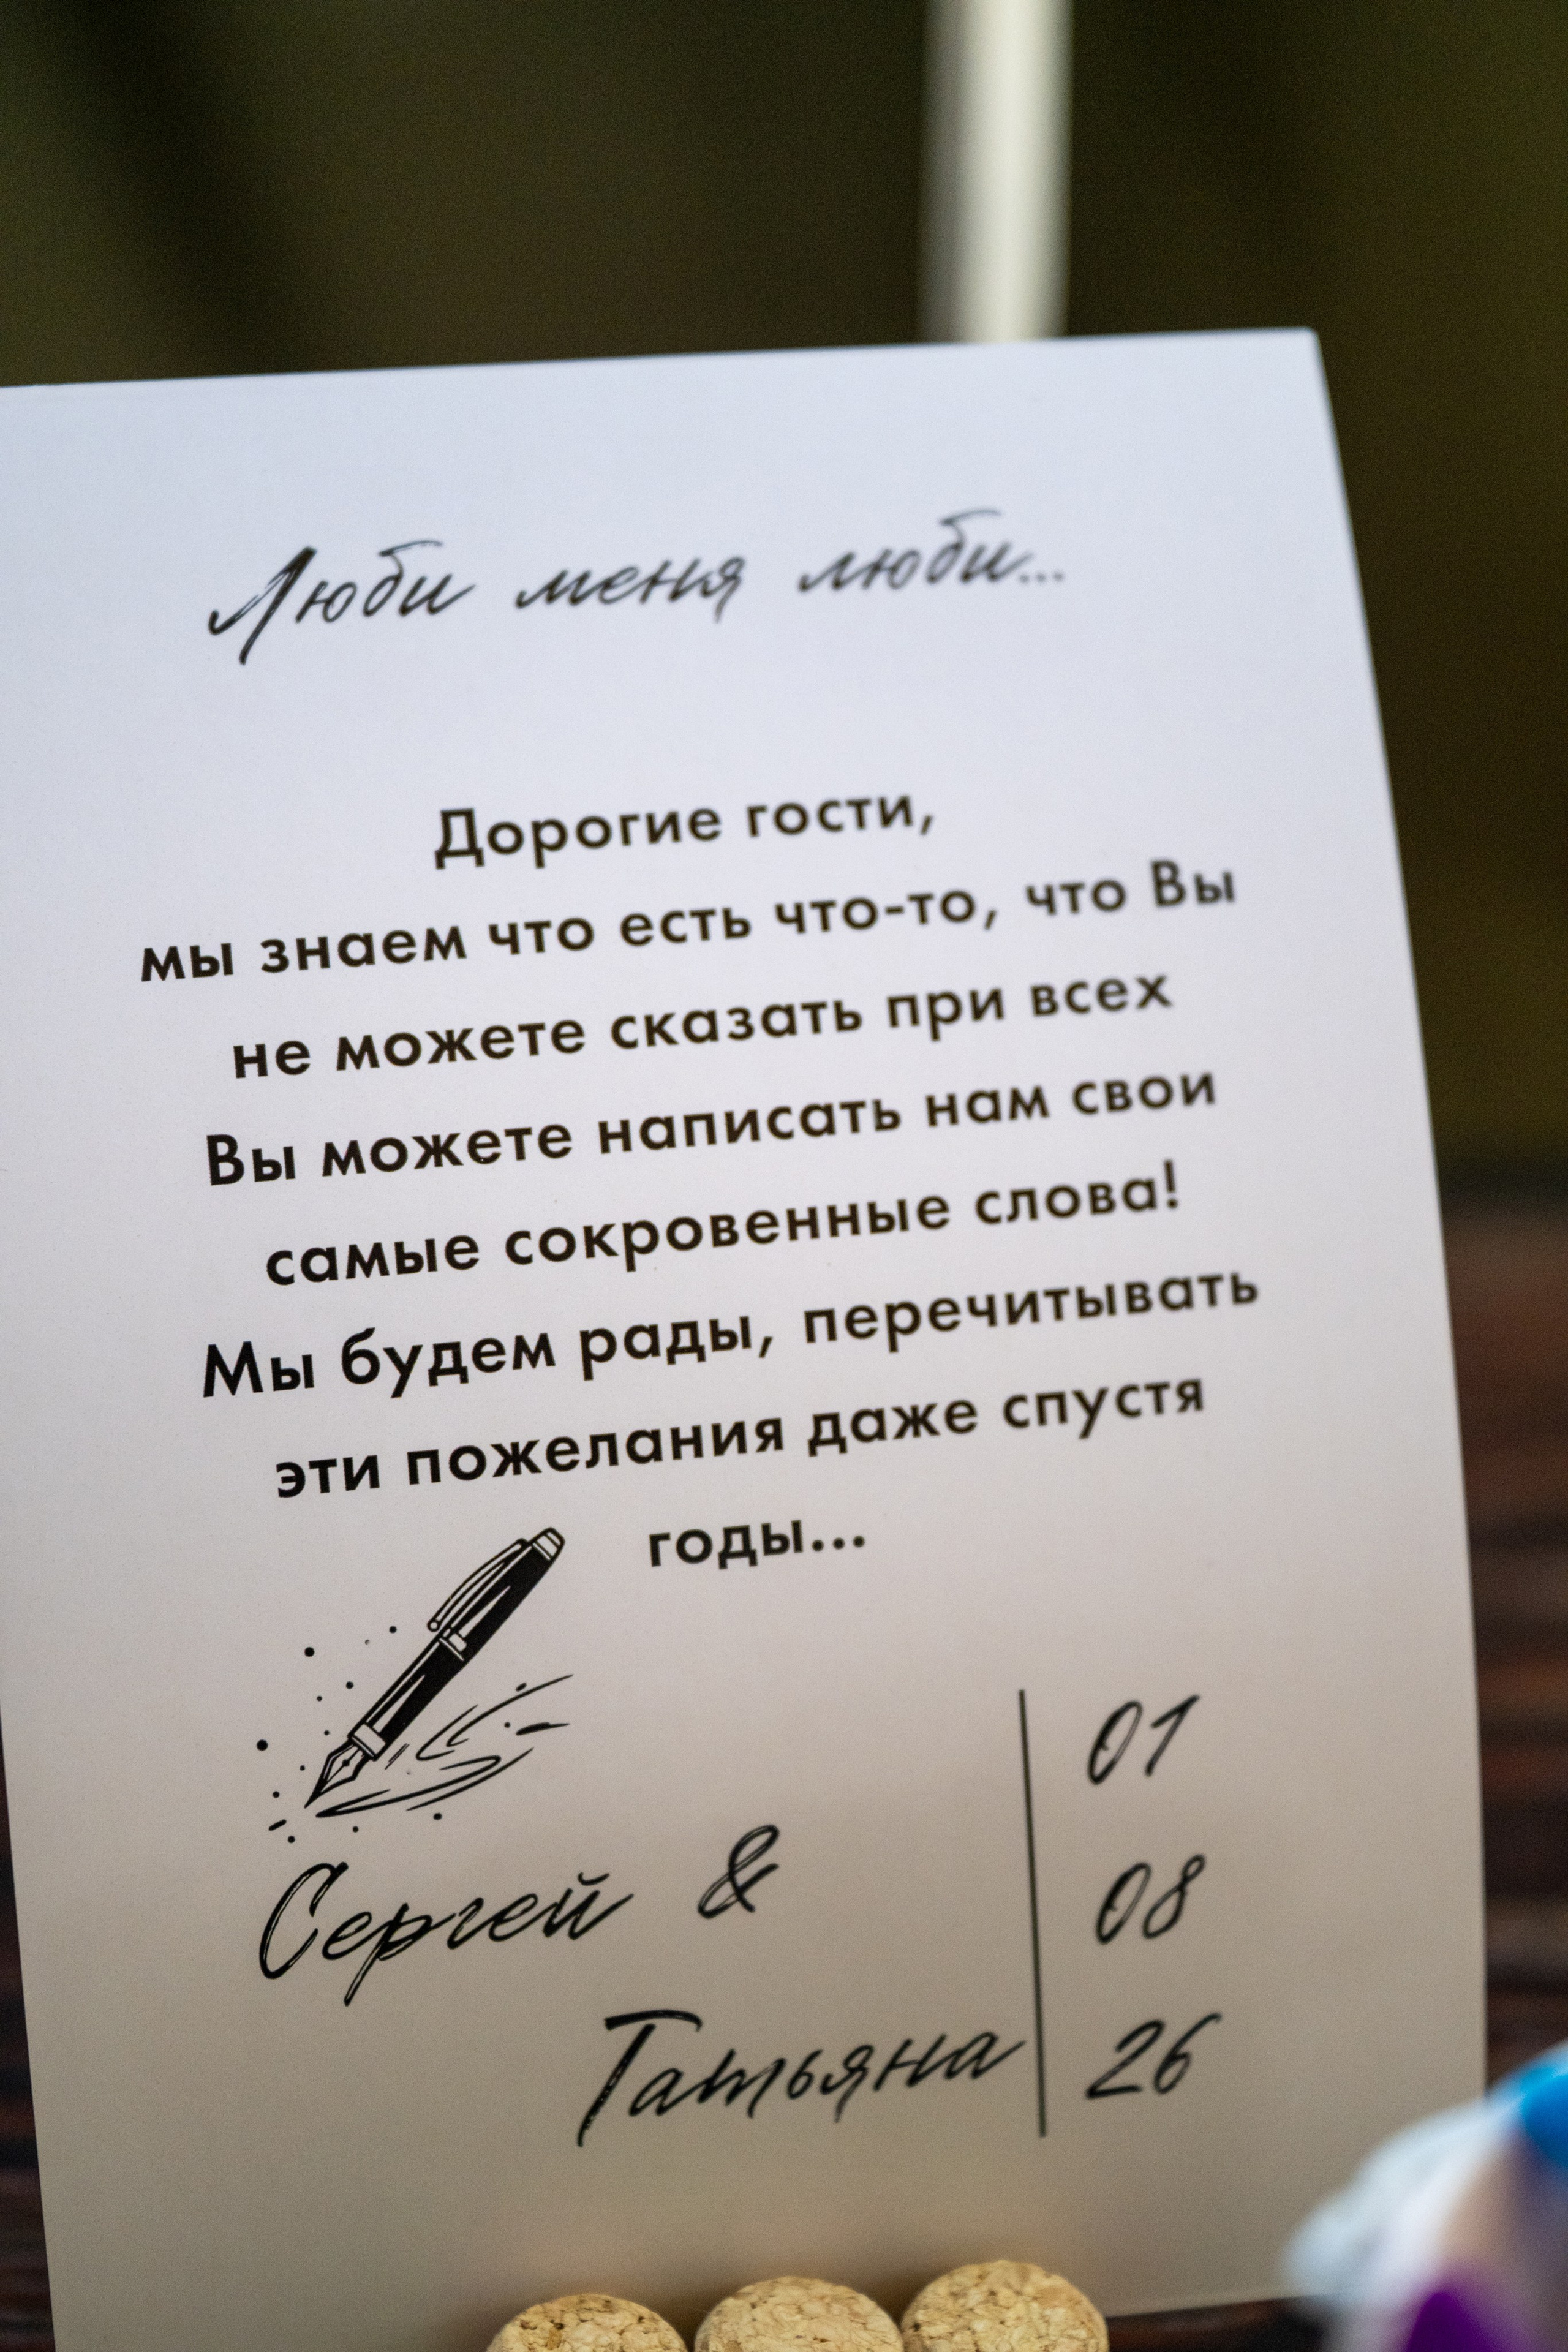 Люби меня люби...
Дорогие гости,
мы знаем что есть что-то, что Вы
не можете сказать при всех
Вы можете написать нам свои
самые сокровенные слова!
Мы будем рады, перечитывать
эти пожелания даже спустя
годы...
Сергей &
Татьяна
01
08
26